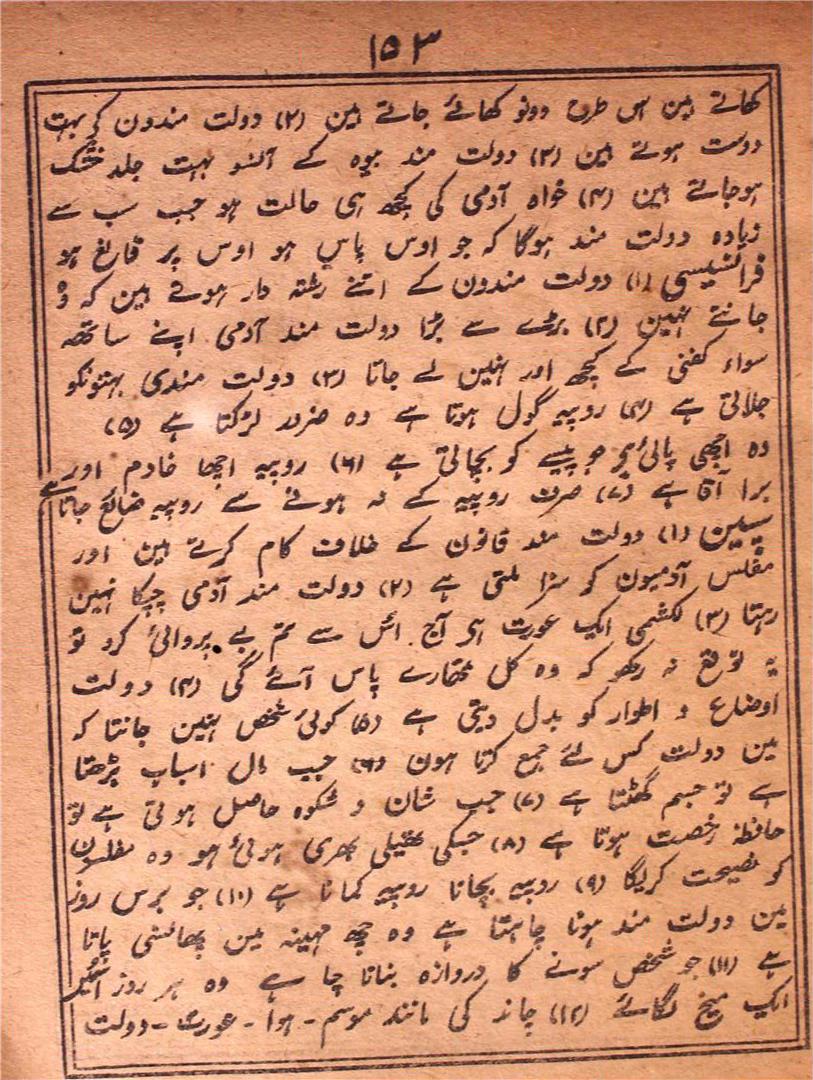 ۱۵۳
کھاتے ہین اس طرح وونو کھائے جاتے ہین (۲) دولت مندون کے بہت
دوست ہوتے ہین (۳) دولت مند بیوہ کے آنسو بہت جلد خشک
ہوجاتے ہین (۴) خواہ آدمی کی کچھ ہی حالت ہو جب سب سے
زیادہ دولت مند ہوگا کہ جو اوس پاس ہو اوس پر قانع ہو
فرانسیسی (۱) دولت مندون کے اتنے رشتہ دار ہوتے ہین کہ وہ
جانتے نہین (۲) بڑے سے بڑا دولت مند آدمی اپنے ساتھہ
سواء کفنی کے کچھ اور نہین لے جاتا (۳) دولت مندی بہتونکو
جلاتی ہے (۴) روپیہ گول ہوتا ہے وہ ضرور لڑکتا ہے (۵)
وہ اچھی پائی ہر جو پیسے کو بچاتی ہے (۶) روپیہ اچھا خادم اور
برا آقا ہے (۷) صرف روپیہ کے نہ ہونے سے روپیہ ضائع جاتا ہے
سپین (۱) دولت مند قانون کے خلاف کام کرتے ہین اور
مفلس آدمیون کو سزا ملتی ہے (۲) دولت مند آدمی چپکا نہین
رہتا (۳) لکشمی ایک عورت ہر آج اس سے تم بے پروائی کرو تو
یہ توقع نہ رکھو کہ وہ کل تمھارے پاس آئے گی (۴) دولت
اوضاع و اطوار کو بدل دیتی ہے (۵) کوئی شخص نہین جانتا کہ
مین دولت کس لئے جمع کرتا ہون (۶) جب مال اسباب بڑھتا
ہے تو جسم گھٹتا ہے (۷) جب شان و شکوہ حاصل ہوتی ہے تو
حافظہ رخصت ہوتا ہے (۸) جسکی تھیلی بھری ہوئی ہو وہ مفلسون
کو نصیحت کریگا (۹) روپیہ بچانا روپیہ کمانا ہے (۱۰) جو برس روز
مین دولت مند ہونا چاہتا ہے وہ چھ مہینہ مین پھانسی پاتا
ہے (۱۱) جو شخص سونے کا دروازہ بنانا چاہے وہ ہر روز اسمین
ایک میخ لگائے (۱۲) چاند کی مانند موسم - ہوا - عورت - دولت